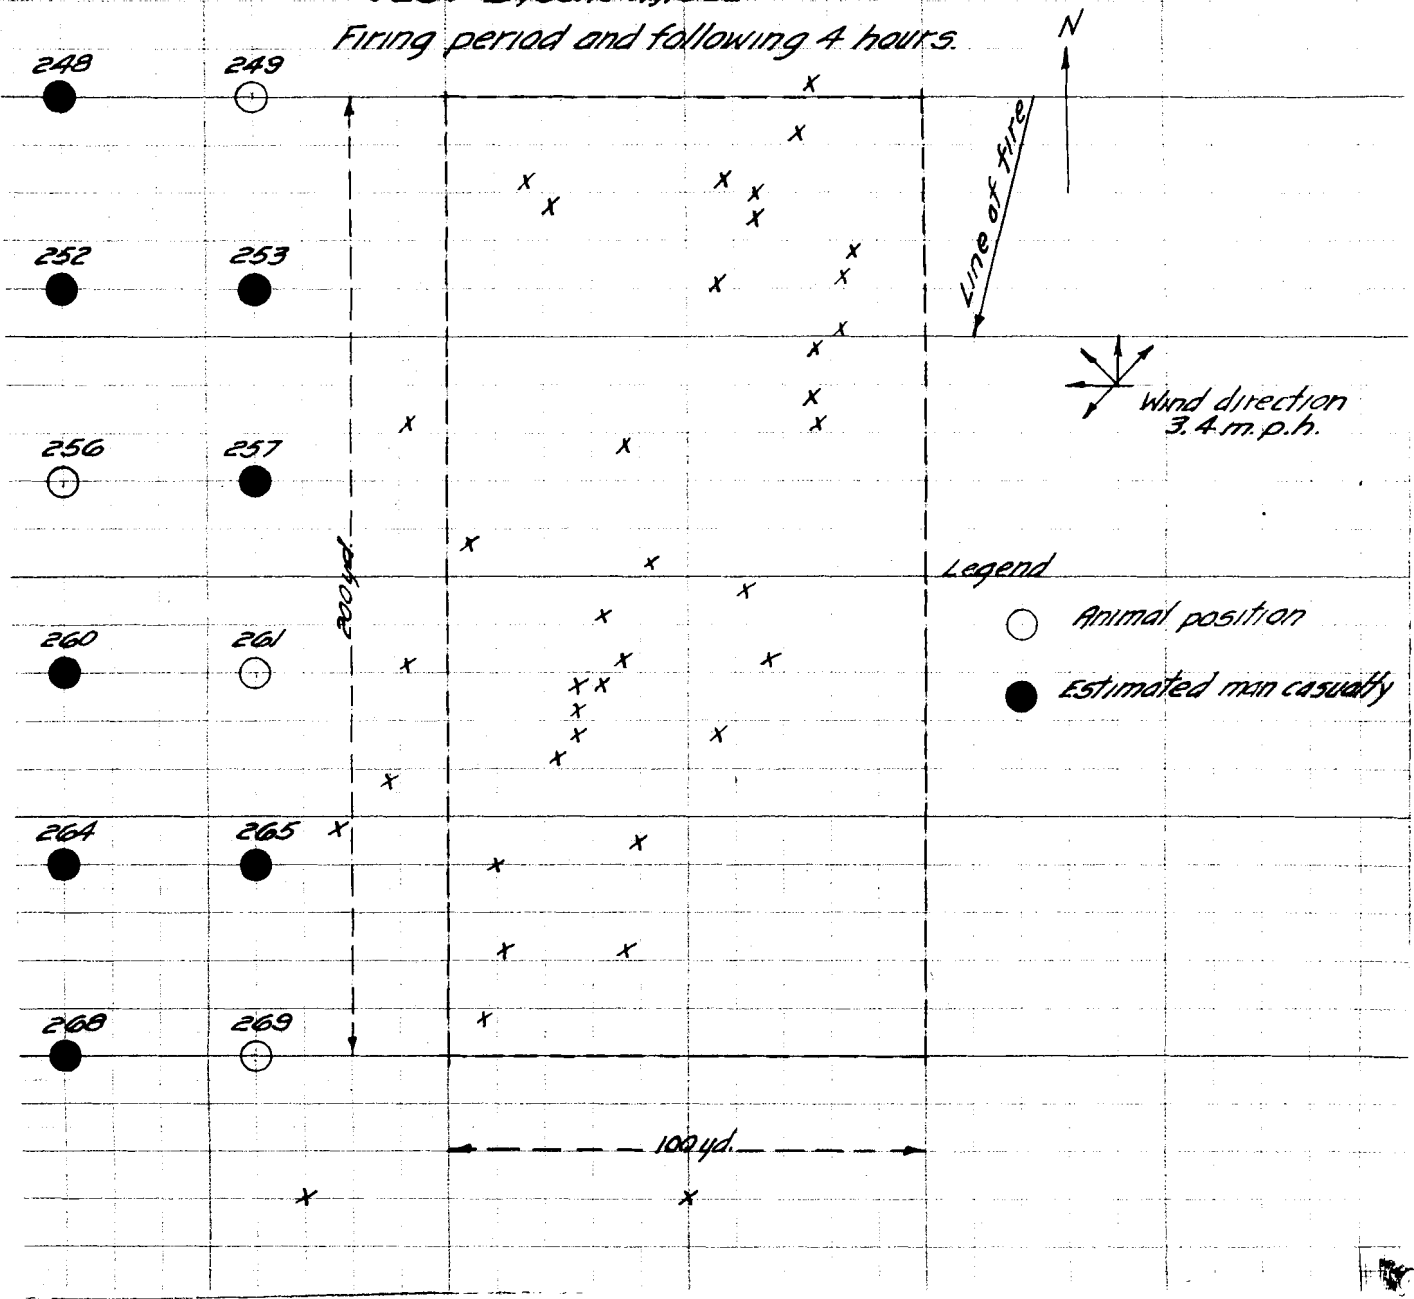 Firing period and following 4 hours.
N
248 249
Line of fire
252 253
Wind direction
3.4 m.p.h.
256 257
200 yd.
Legend
Animal position
260 261
Estimated man casualty
264 265
268 269
100 yd.